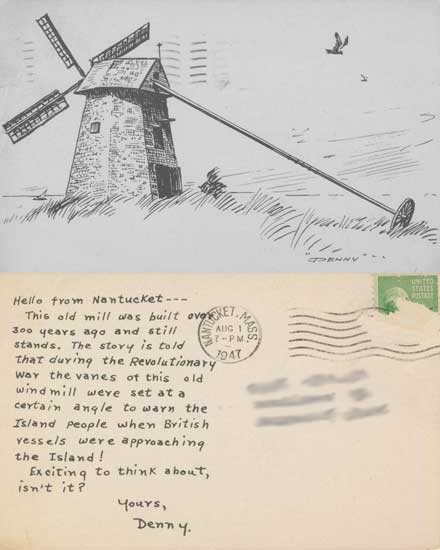 "DENNY"
Hello from Nantucket---
This old mill was built over
300 years ago and still
stands. The story is told
that during the Revolutionary
War the vanes of this old
windmill were set at a
certain angle to warn the
Island people when British
vessels were approaching
the Island!
Exciting to think about,
isn't it?
Yours,
Denny.
NANTUCKET, MASS.
AUG 1
7-PM
1947
UNITED
STATES
POSTAGE